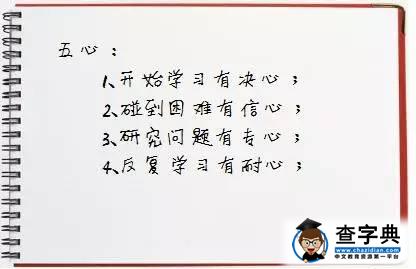 五心：
1、开始学习有决心；
2、碰到困难有信心；
3、研究问题有专心；
4、反复学习有耐心；
查字典
www.chazidian.com
中文教育资源第一平台